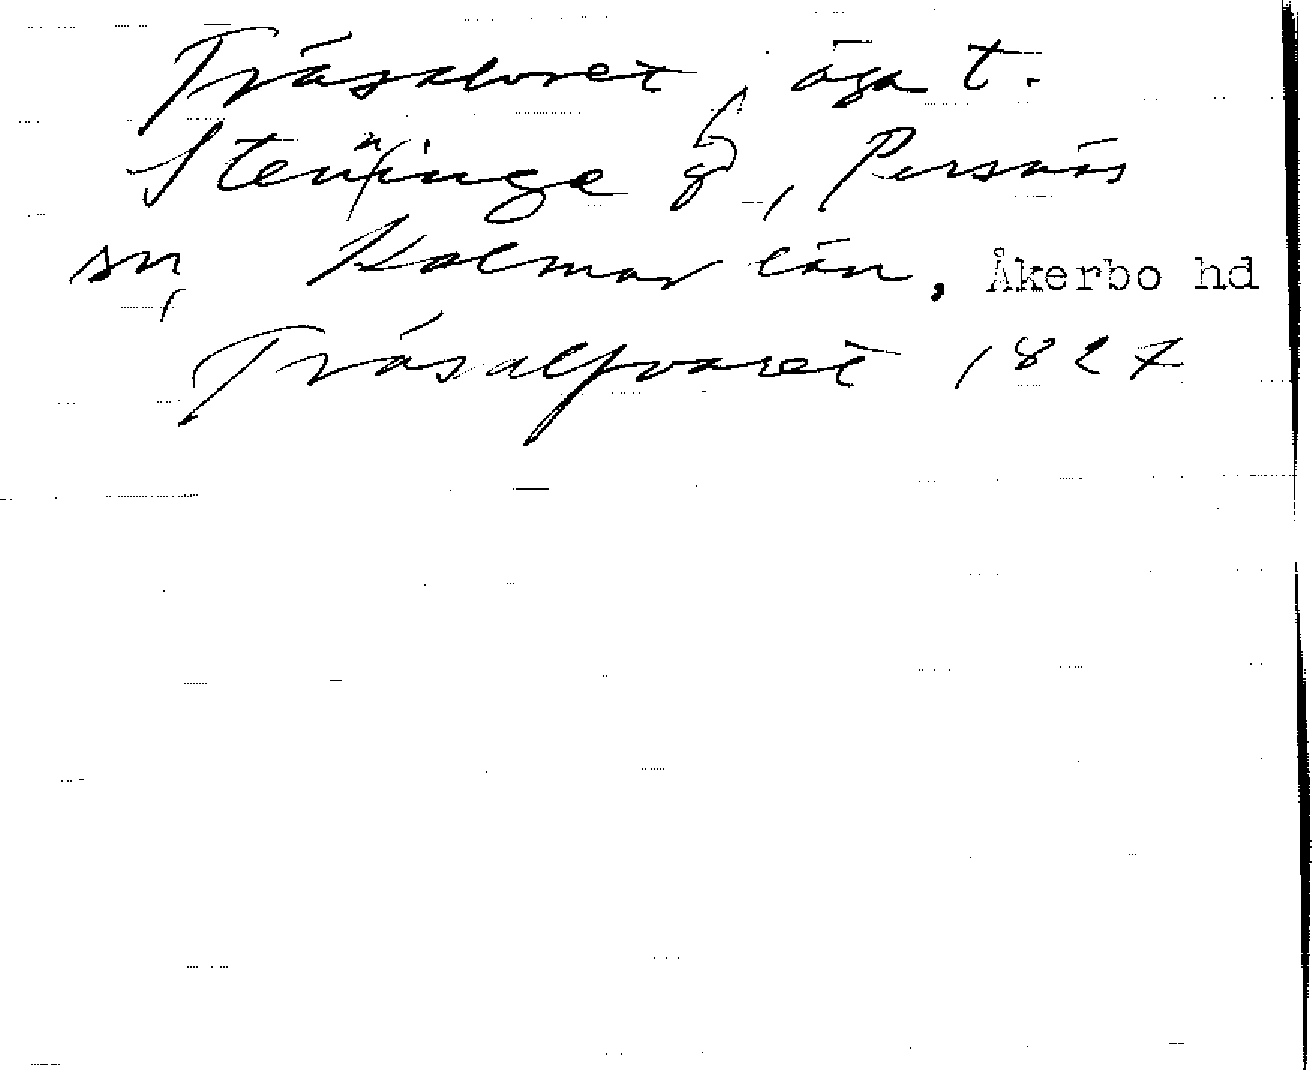 Träsalvret, äga t.
Stenninge, Persnäs
sn, Kalmar län, Åkerbo hd
Träsalfvaret 1827